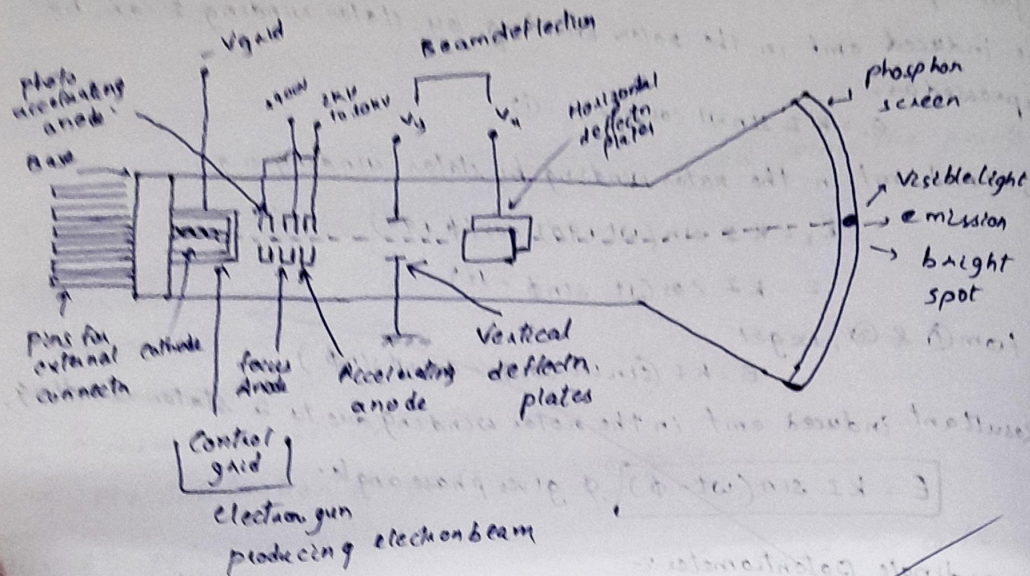 Vgrid
Beam deflection
phosphor
screen
accelerating
anode
Base
2KV
Vy
Vx
Horizontal
deflectn
plates
visible light
emission
bright
spot
pins for
external
connectn
cathode
focus
Anode
Accelerating
anode
Vertical
deflectn
plates
Control
grid
electron gun
producing electron beam